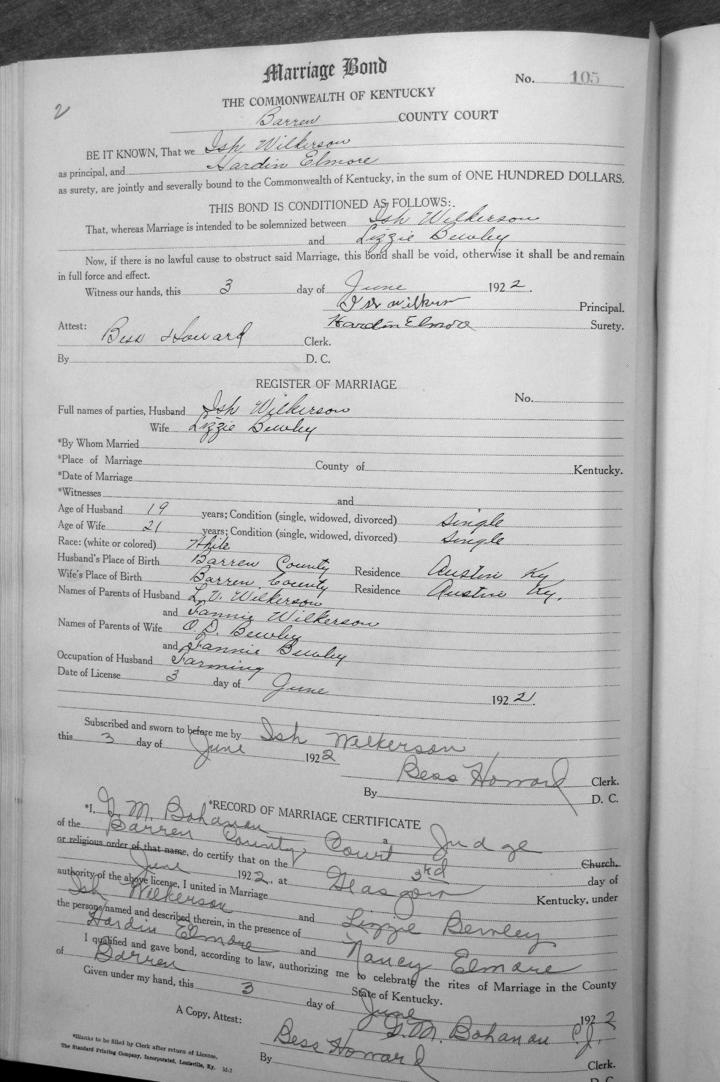 Marriage Bond
No. 105
2
THE COMMONWEALTH OF KENTUCKY
Barren COUNTY COURT
BE IT KNOWN, That we Ish Wilkerson
as principal, and Hardin Elmore
as surety, are jointly and severally bound to the Commonwealth of Kentucky, in the sum of ONE HUNDRED DOLLARS.
THIS BOND IS CONDITIONED AS FOLLOWS:
That, whereas Marriage is intended to be solemnized between Ish Wilkerson
and Lizzie Bewley
Now, if there is no lawful cause to obstruct said Marriage, this Bond shall be void, otherwise it shall be and remain
in full force and effect.
Witness our hands, this 3 day of June 1922.
Ish Wilkerson Principal.
Hardin Elmore Surety.
Attest: Bess Howard Clerk.
By D. C.
REGISTER OF MARRIAGE
No.
Full names of parties, Husband Ish Wilkerson
Wife Lizzie Bewley
*By Whom Married
*Place of Marriage County of Kentucky.
*Date of Marriage
*Witnesses and
Age of Husband 19 years; Condition (single, widowed, divorced) single
Age of Wife 21 years; Condition (single, widowed, divorced) single
Race: (white or colored) White
Husband's Place of Birth Barren County Residence Austin Ky
Wife's Place of Birth Barren County Residence Austin Ky.
Names of Parents of Husband L. V. Wilkerson
and Fannie Wilkerson
Names of Parents of Wife O. D. Bewley
and Fannie Bewley
Occupation of Husband Farming
Date of License 3 day of June 1922.
Subscribed and sworn to before me by Ish Wilkerson
this 3 day of June 1922
Bess Howard Clerk.
By D. C.
*RECORD OF MARRIAGE CERTIFICATE
*I, M. Bohanan a Judge
of the Barren County Court Church,
or religious order of that name, do certify that on the 3rd day of
June 1922, at Glasgow Kentucky, under
authority of the above license, I united in Marriage
Ish Wilkerson and Lizzie Bewley
the persons named and described therein, in the presence of
Hardin Elmore and Nancy Elmore
I qualified and gave bond, according to law, authorizing me to celebrate the rites of Marriage in the County
of Barren State of Kentucky.
Given under my hand, this 3 day of June 1922
M. Bohanan C.J.
A Copy, Attest: Bess Howard Clerk.
By D. C.
*Blanks to be filled by Clerk after return of License.
The Standard Printing Company, Incorporated, Louisville, Ky.